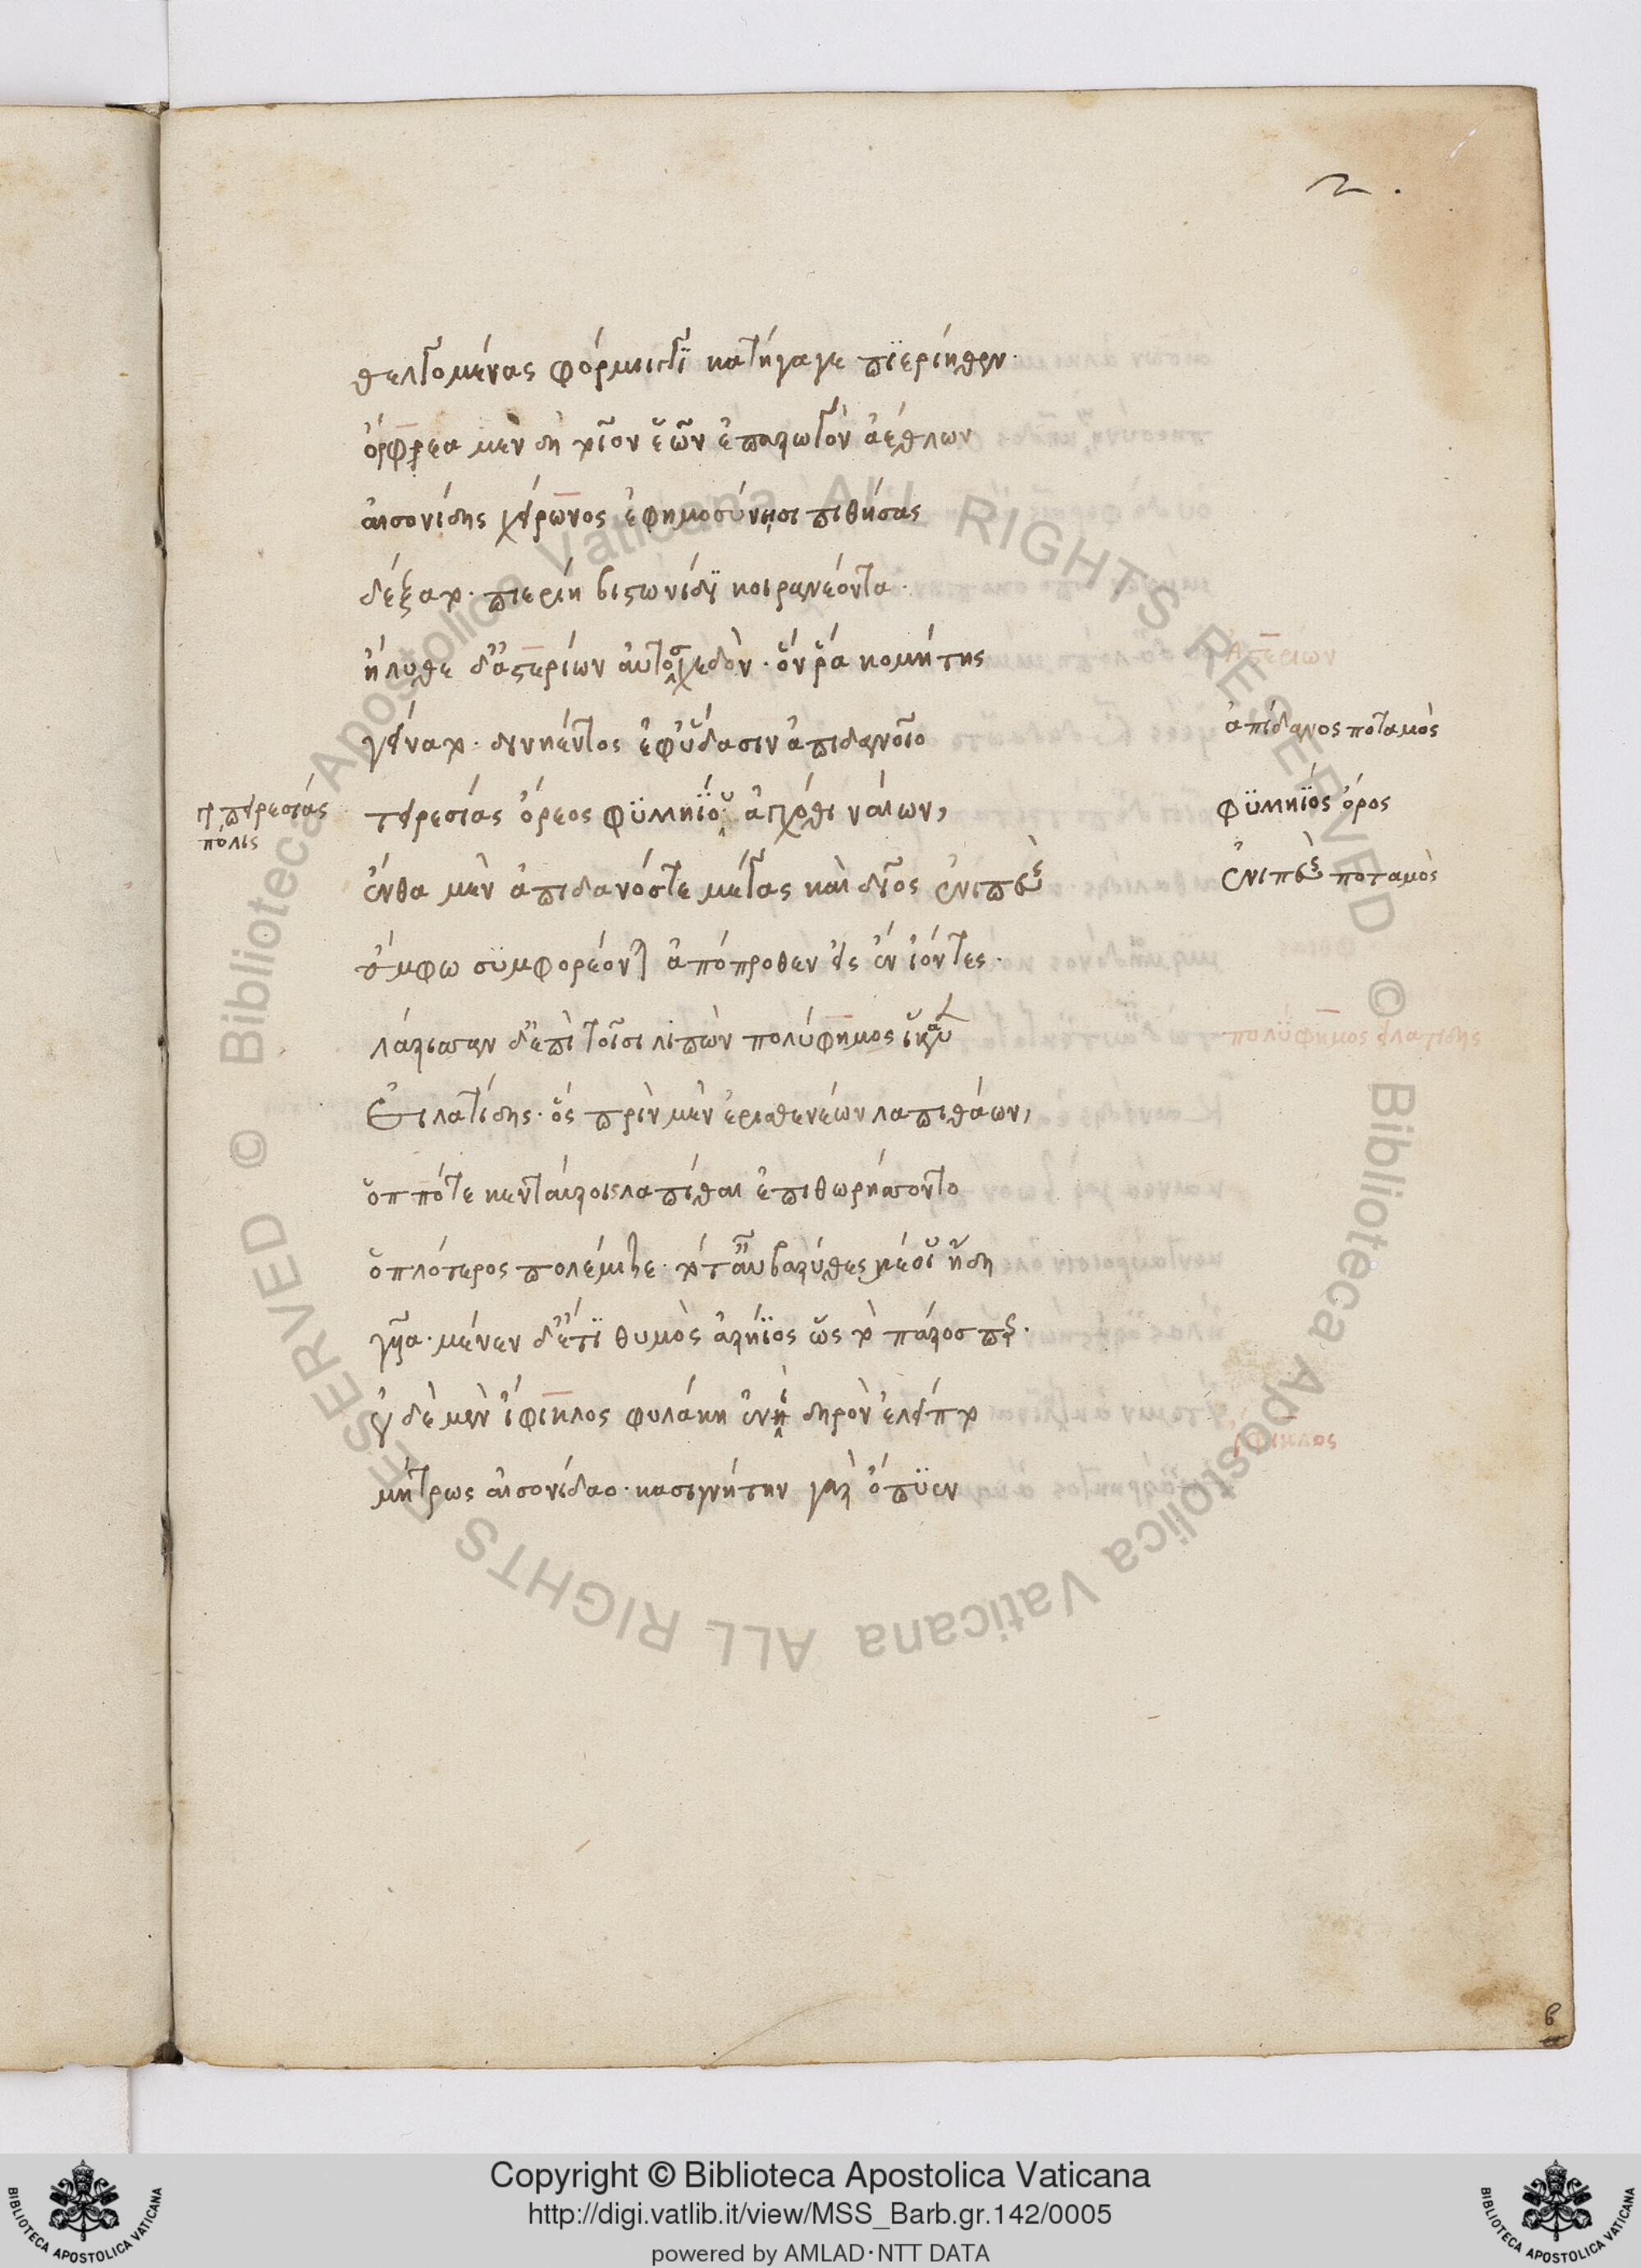 2.
θελγομένας φόρμιγγϊ κατήγαγε πϊερίηθεν·
ὀρφέα μὲν δὴ τοῖον ἑῶν ἐπαρωγὸν ἀέθλων
αἰσονίδης χείρωνος ἐφημοσύνῃσι πιθήσας
δέξατο· πιερίη βιστωνίδϊ κοιρανέοντα·
ἤλυθε δ' ἀστερίων αὐτοσχεδὸν· ὅν ῥά κομήτης
Ἀστερίων
γείνατο· δινήεντος ἐφ' ὕδασιν ἀπιδανοῖο
ἀπίδανος ποταμὸς
πειρεσιὰς
πόλις
πειρεσιὰς ὄρεος φϋλληΐου ἀγχόθι ναίων,
φϋλλήϊος ὄρος
ἔνθα μὲν ἀπιδανός τε μέγας καὶ δῖος ἐνιπεὺς
ἐνιπεὺς ποταμὸς
ἄμφω συμφορέονται ἀπόπροθεν εἰς ἓν ἰόντες·
λάρισσαν δ' ἐπὶ τοῖσι λιπὼν πολύφημος ἵκανεν
πολύφημος εἰλατίδης
Εἰλατίδης· ὃς πρὶν μὲν ἐρισθενέων λαπιθάων,
ὁππότε κενταύροις λαπίθαι ἐπιθωρήσσοντο
ὁπλότερος πολέμιζε· τότ' αὖ βαρύθεσκέ οἱ ἤδη
γυῖα· μένεν δ' ἔτϊ θυμὸς ἀρήϊος ὡς τὸ πάρος περ·
οὐδὲ μὲν ἴφικλος φυλάκη ἔνι δηρὸν ἐλείπτο
ἴφικλος
μήτρως αἰσονίδαο· κασιγνήτην γὰρ ὄπϋιεν
β
Copyright © Biblioteca Apostolica Vaticana
http://digi.vatlib.it/view/MSS_Barb.gr.142/0005
powered by AMLAD·NTT DATA
BIBLIOTECA APOSTOLICA VATICANA
BIBLIOTECA APOSTOLICA VATICANA
© Biblioteca Apostolica Vaticana ALL RIGHTS RESERVED © Biblioteca Apostolica Vaticana ALL RIGHTS RESERVED